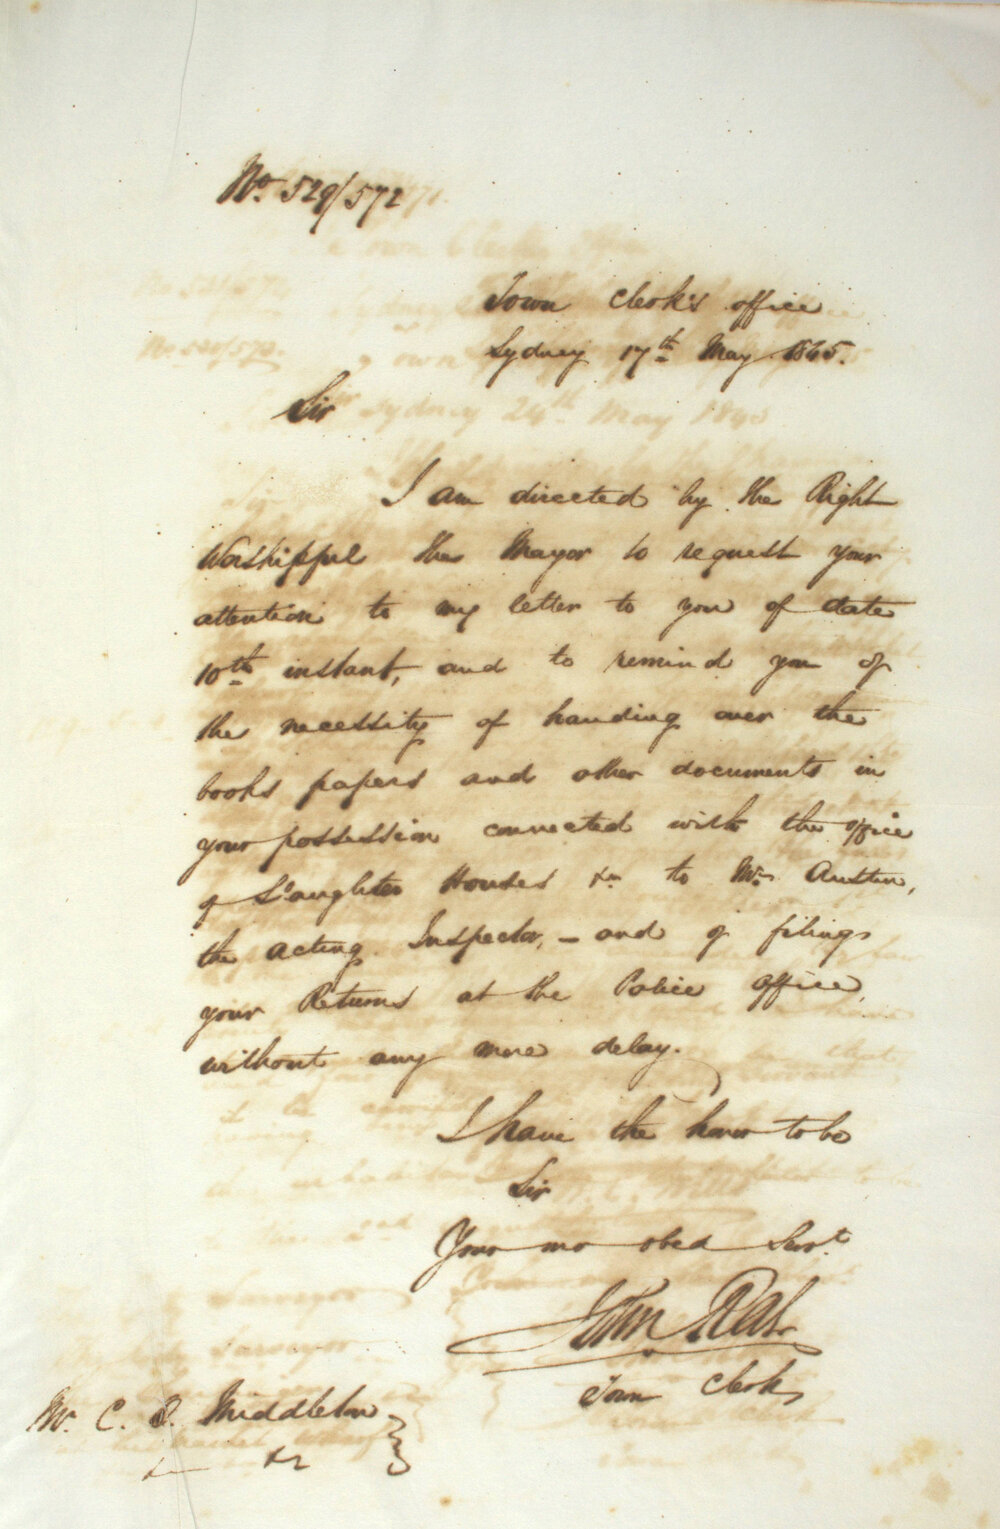 No. 529/572
Town Clerk's office
Sydney 17th May 1845.
Sir
I am directed by the Right
Worshipful the Mayor to request your
attention to my letter to you of date
10th instant, and to remind you of
the necessity of handing over the
books papers and other documents in
your possession connected with the office
of Slaughter Houses &c to Mr. Austin,
the acting Inspector, – and of filing
your Returns at the Police office,
without any more delay.
I have the honor to be
Sir
Your mo obed Servt.
John Rae
Town Clerk
Mr. C. Middleton
&c &c